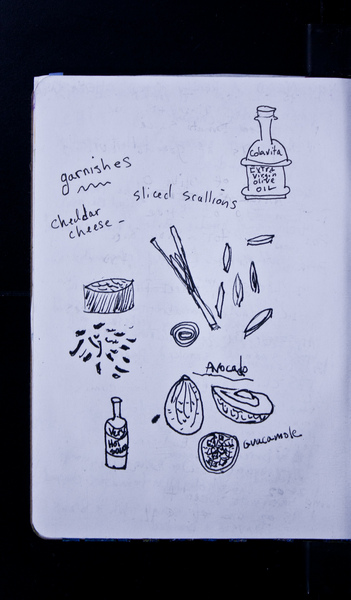 Colavita
EXTRA
Virgin
olive
OIL
garnishes
sliced scallions
cheddar
cheese -
Avocado
Very
Hot
Guacamole